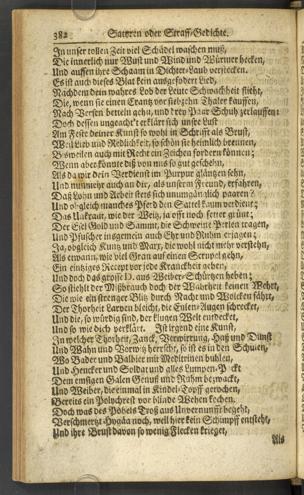 382 Satyren oder Straff-Gedichte.
In unser tollen Zeit viel Schädel waschen muß,
Die innerlich nur Wust und Wind und Würmer hecken,
Und aussen ihre Schaam in Dichter-Laub verstecken.
Es ist auch dieses Blat kein ausgefodert Lied,
Nachdem dein wahres Lob der Leute Schwachheit flieht,
Die, wenn sie einen Crantz vor siebzehn Thaler kauffen,
Nach Versen betteln gehn, und drey Paar Schuh zerlauffen:
Doch dessen ungeacht't erklärt sich unsre Lust
Am Feste deiner Kunst so wohl in Schrifft als Brust,
Weil Lieb und Redlichkeit, so schön sie heimlich brennen,
Bisweilen auch mit Recht ein Zeichen fordern können;
Wenn aber könnte diß von uns so gut geschehn,
Als da wir dein Verdienst im Purpur gläntzen sehn,
Und nunmehr auch an dir, als unserm Freund, erfahren,
Daß Lohn und Arbeit stets sich unumgänglich paaren?
Und obgleich manches Pferd den Sattel kaum verdient;
Das Unkraut, wie der Weitz, ja offt noch feter grünt;
Der Esel Gold und Sammt, die Schweine Perlen tragen,
Und Pfuscher insgemein auch Ehr und Ruhm erjagen;
Ja, obgleich Kuntz und Marx, die wohl nicht mehr verstehn,
Als etwann, wie viel Gran auf einen Scrupel gehn,
Ein eintziges Recept vor jede Kranckheit geben,
Und doch das grosse D. aus Weiber-Schürtzen heben;
So stiehlt der Mißbrauch doch der Wahrheit keinen Wehrt,
Die wie ein strenger Blitz durch Nacht und Wolcken fährt,
Der Thorheit Larven bleicht, die Eulen-Augen schrecket,
Und die, so würdig sind, der klugen Welt entdecket,
Und so wie dich verklärt. Ist irgend eine Kunst,
In welcher Thorheit, Zanck, Verwirrung, Haß und Dunst
Und Wahn und Vorwitz herrscht, so ist es in den Schulen,
Wo Bader und Balbier mit Meditrinen buhlen,
Und Hencker und Soldat und alles Lumpen-Pack
Dem emsigen Galen Genuß und Ruhm bezwackt,
Und Weiber, die einmal in Kindel-Topff gerochen,
Bereits ein Polychrest vor blinde Wehen kochen.
Doch was des Pöbels Troß aus Unvernunfft begeht,
Verschmertzt Hygäa noch, weil hier kein Schimpff entsteht,
Und ihre Brust davon so wenig Flecken krieget,
Als